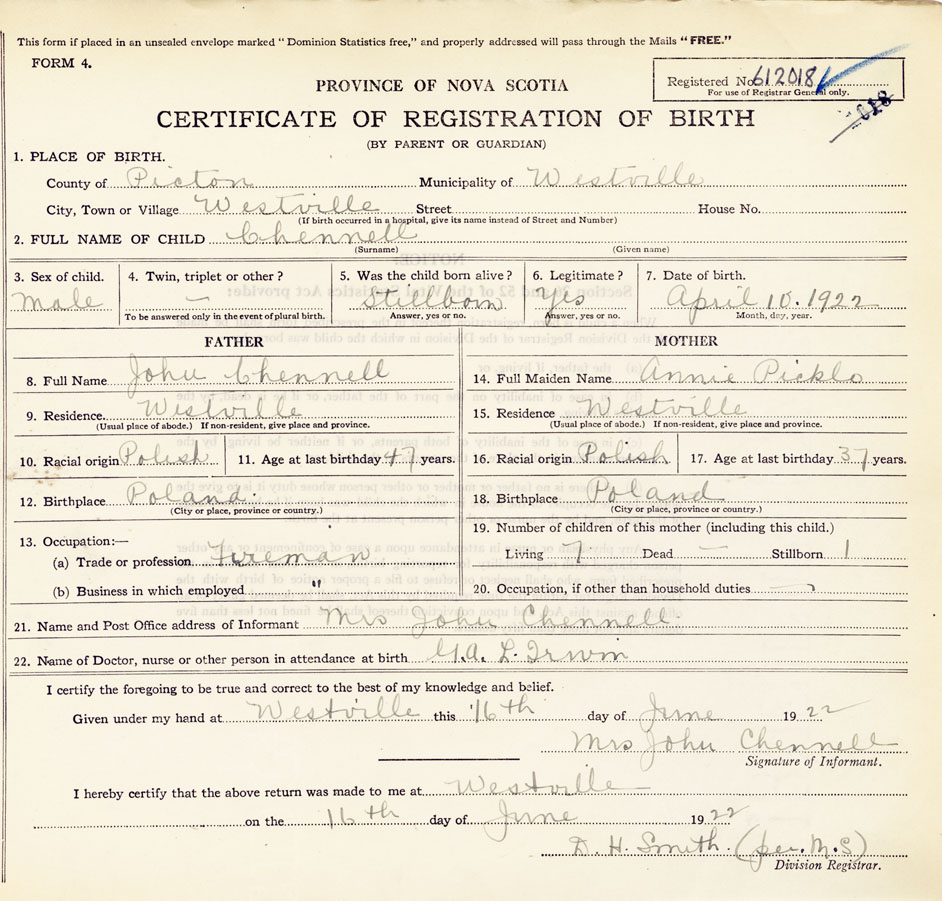 This form if placed in an unsealed envelope marked "Dominion Statistics free," and properly addressed will pass through the Mails "FREE."
FORM 4.
Registered No. 612018
For use of Registrar General only.
618
PROVINCE OF NOVA SCOTIA
CERTIFICATE OF REGISTRATION OF BIRTH
(BY PARENT OR GUARDIAN)
1. PLACE OF BIRTH.
County of Picton Municipality of Westville
City, Town or Village Westville Street House No.
(If birth occurred in a hospital, give its name instead of Street and Number)
2. FULL NAME OF CHILD Chennell
(Surname) (Given name)
3. Sex of child. 4. Twin, triplet or other? 5. Was the child born alive? 6. Legitimate? 7. Date of birth.
Male — Stillborn Yes April 10. 1922
To be answered only in the event of plural birth. Answer, yes or no. Answer, yes or no. Month, day, year.
FATHER MOTHER
8. Full Name John Chennell 14. Full Maiden Name Annie Picklo
9. Residence. Westville 15. Residence Westville
(Usual place of abode.) If non-resident, give place and province. (Usual place of abode.) If non-resident, give place and province.
10. Racial origin Polish 11. Age at last birthday 47 years. 16. Racial origin Polish 17. Age at last birthday 37 years.
12. Birthplace Poland. 18. Birthplace Poland
(City or place, province or country.) (City or place, province or country.)
13. Occupation:— 19. Number of children of this mother (including this child.)
(a) Trade or profession Fireman Living 7 Dead — Stillborn 1
(b) Business in which employed " 20. Occupation, if other than household duties —
21. Name and Post Office address of Informant Mrs John Chennell.
22. Name of Doctor, nurse or other person in attendance at birth L. Irwin
I certify the foregoing to be true and correct to the best of my knowledge and belief.
Given under my hand at Westville this 16th day of June 1922
Mrs John Chennell
Signature of Informant.
I hereby certify that the above return was made to me at Westville
on the 16th day of June 1922
D. H. Smith. (per. M.S)
Division Registrar.